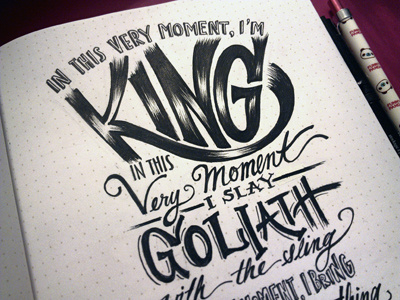 IN THIS VERY MOMENT, I'M
KING
IN THIS
Very Moment
I SLAY
GOLIATH
with the sling
MOMENT, I BRING
thing